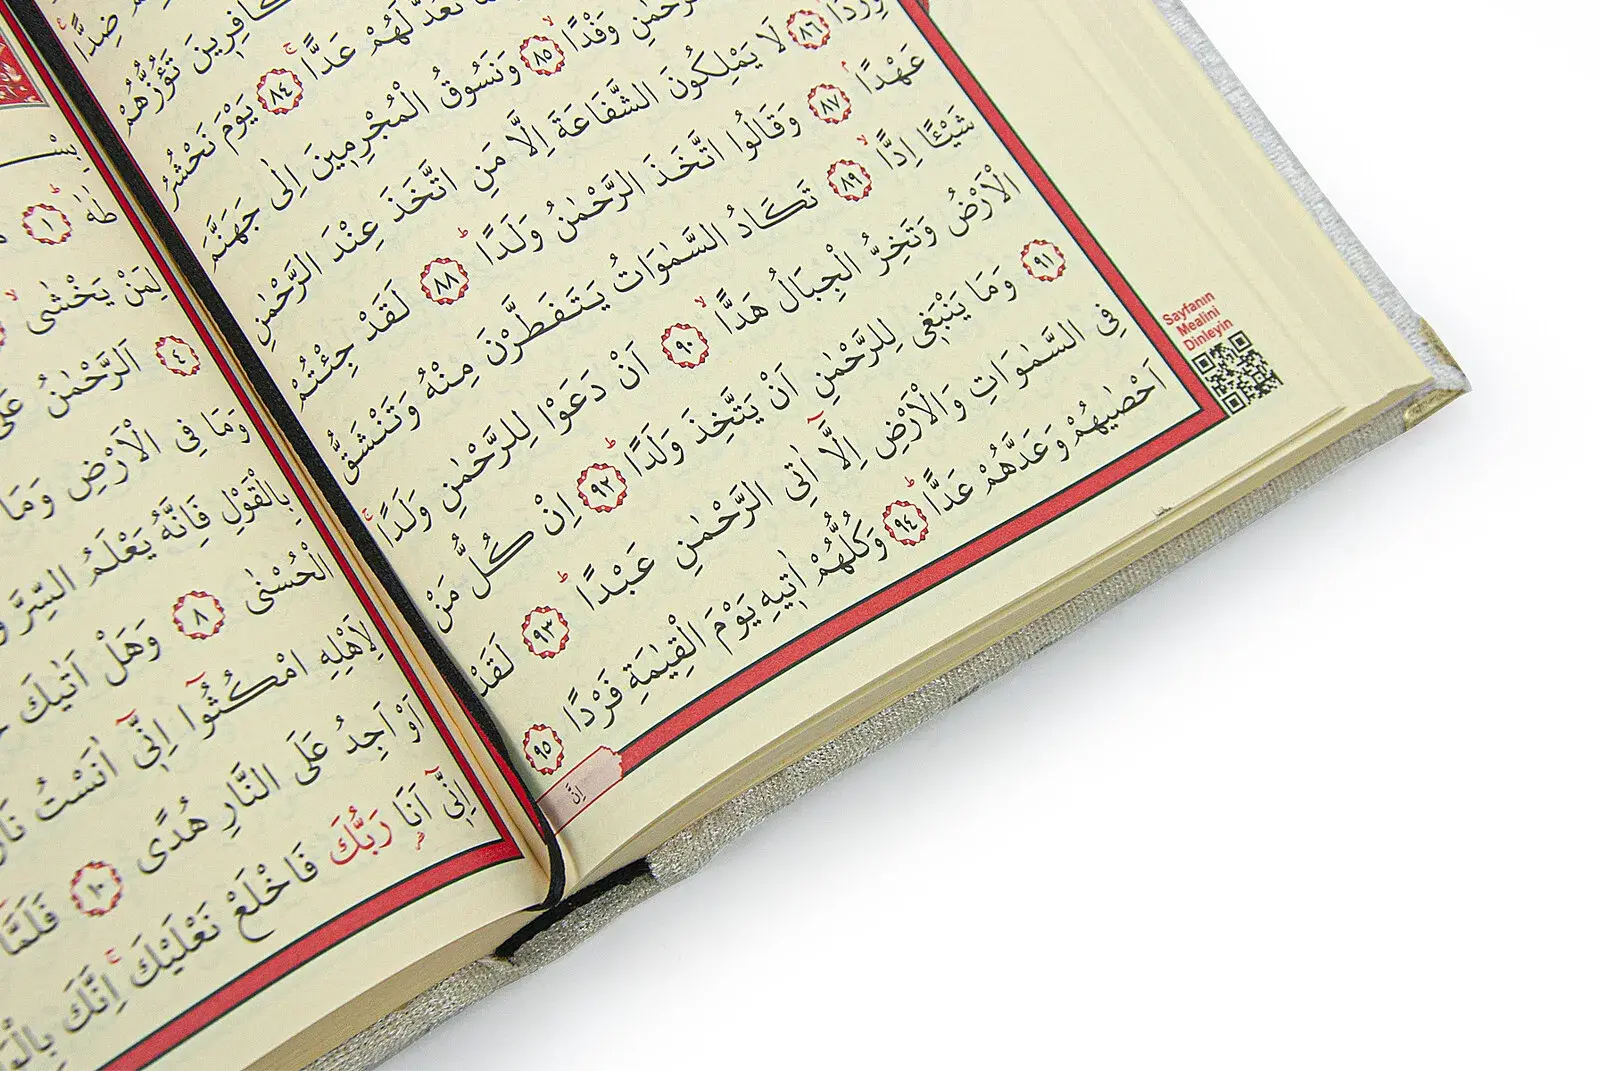 ضِدًّا
كَافِرِينَ تَؤُزُّهُمْ
نَعُدُّ لَهُمْ عَدًّا ٨٤ يَوْمَ نَحْشُرُ
الرَّحْمٰنِ وَفْدًا ٨٥ وَنَسُوقُ الْمُجْرِمِينَ اِلٰى جَهَنَّمَ
وِرْدًا ٨٦ لَا يَمْلِكُونَ الشَّفَاعَةَ اِلَّا مَنِ اتَّخَذَ عِنْدَ الرَّحْمٰنِ
عَهْدًا ٨٧ وَقَالُوا اتَّخَذَ الرَّحْمٰنُ وَلَدًا ٨٨ لَقَدْ جِئْتُمْ
شَيْـًٔا اِدًّا ٨٩ تَكَادُ السَّمٰوَاتُ يَتَفَطَّرْنَ مِنْهُ وَتَنْشَقُّ
الْاَرْضُ وَتَخِرُّ الْجِبَالُ هَدًّا ٩٠ اَنْ دَعَوْا لِلرَّحْمٰنِ وَلَدًا
٩١ وَمَا يَنْبَغِي لِلرَّحْمٰنِ اَنْ يَتَّخِذَ وَلَدًا ٩٢ اِنْ كُلُّ مَنْ
فِي السَّمٰوَاتِ وَالْاَرْضِ اِلَّٓا اٰتِي الرَّحْمٰنِ عَبْدًا ٩٣ لَقَدْ
اَحْصٰيهُمْ وَعَدَّهُمْ عَدًّا ٩٤ وَكُلُّهُمْ اٰتِيهِ يَوْمَ الْقِيٰمَةِ فَرْدًا ٩٥
اِنَّ
Sayfanın
Mealini
Dinleyin
بِسْـ
طٰهٰ ١
لِمَنْ يَخْشٰى
٤ اَلرَّحْمٰنُ عَلَى
وَمَا فِي الْاَرْضِ وَمَا
بِالْقَوْلِ فَاِنَّهُ يَعْلَمُ السِّرَّ
الْحُسْنٰى ٨ وَهَلْ اَتٰيكَ
لِاَهْلِهِ امْكُثُٓوا اِنِّٓي اٰنَسْتُ
اَوْ اَجِدُ عَلَى النَّارِ هُدًى ١٠ فَلَمَّٓا
اِنِّٓي اَنَا۬ رَبُّكَ فَاخْلَعْ نَعْلَيْكَ اِنَّكَ